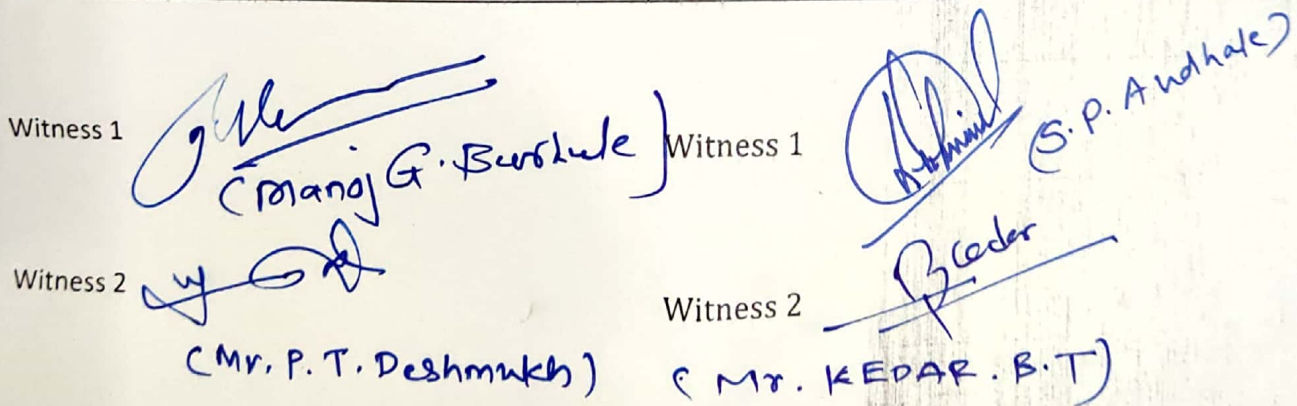 Witness 1
(Manoj G. Burkule)
Witness 2
(Mr. P. T. Deshmukh)
Witness 1
(S. P. Andhale)
Witness 2
(Mr. KEDAR. B. T)